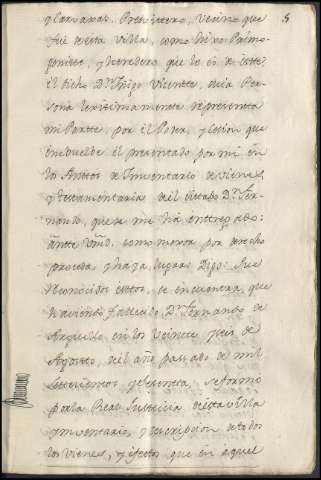 y Carvajal, Presvitero, Vezino que
fué de esta Villa, como Hixo Primo-
genito, y heredero que lo es de este:
el dicho Dn. Yñigo Vicente, cuia Per-
sona lexitimamente representa
mi Parte, por el Poder, y Cesion que
embuelbe el presentado por mi en
los Auttos de Ymventario de vienes,
y testamentaria del citado Dn. Fer-
nando, que se me há entregado:
ante Vmd. como mexor por derecho
proceda, y haya lugar: Digo: Que
Reconocidos estos, se encuentra, que
haviendo fallecido Dn. Fernando de
Arguello en los Veinte y seis de
Agosto, del año passado de mil
setecientos y sesenta, se formó
por la Real Justicia de esta villa
Ymventario, y descripcion de todos
los vienes, y efectos que en aquel